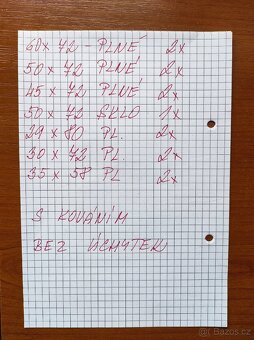 60 x 72 - PLNÉ 2x
50 x 72 PLNÉ 2x
45 x 72 PLNÉ 2x
50 x 72 SKLO 1x
24 x 80 PL. 2x
30 x 72 PL. 2x
35 x 58 PL 2x
S KOVÁNÍM
BEZ ÚCHYTEK
Bazos.cz